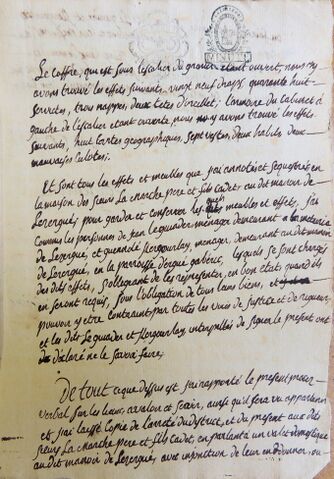 Le coffre, qui est sous l'escalier du grenier etant ouvert, nous y
avons trouvé les effets suivants, vingt neuf draps, quarante huit
serviettes, trois nappes, deux tetes d'oreillet; l'armoire du cabinet à
gauche de l'escalier etant ouverte nous y avons trouvé les effets
suivants, huit cartes geographiques, sept vestes, deux habits, deux
mauvaises culotes;
Et sont tous les effets et meubles que j'ai annotés et sequestrés en
la maison des sieurs La marche pere et fils Cadet, au dit manoir de
Lezergué; pour garder et conserver lesquels meubles et effets, j'ai
Commis les personnes de jean le quader ménager demeurant a la metairie
de Lezergue, et guenole Kergourlay, menager, demeurant au dit manoir
de Lezergue, en la parroisse d'ergue gaberic, lesquels se sont chargés
des dits effets, s'obligeant de les representer, en bon etat quand ils
en seront requis, sous l'obligation de tous leurs biens, et
pouvoir y etre contraint par toutes les voies de justice et de rigueur,
et les dits Le quader et Kergourlay interpellés de signer le present ont
declaré ne le savoir faire;
De tout ce que dessus est j'ai rapporté le present procez
verbal sur les lieux, a valoir et servir, ainsi qu'il sera vu appartenir
et j'ai laissé Copie de l'arret du dit et du present aux dits
sieurs La marche pere et fils Cadet, en parlant à un valet domestique
au dit manoir de Lezergué, avec injonction de leur en donner, ou